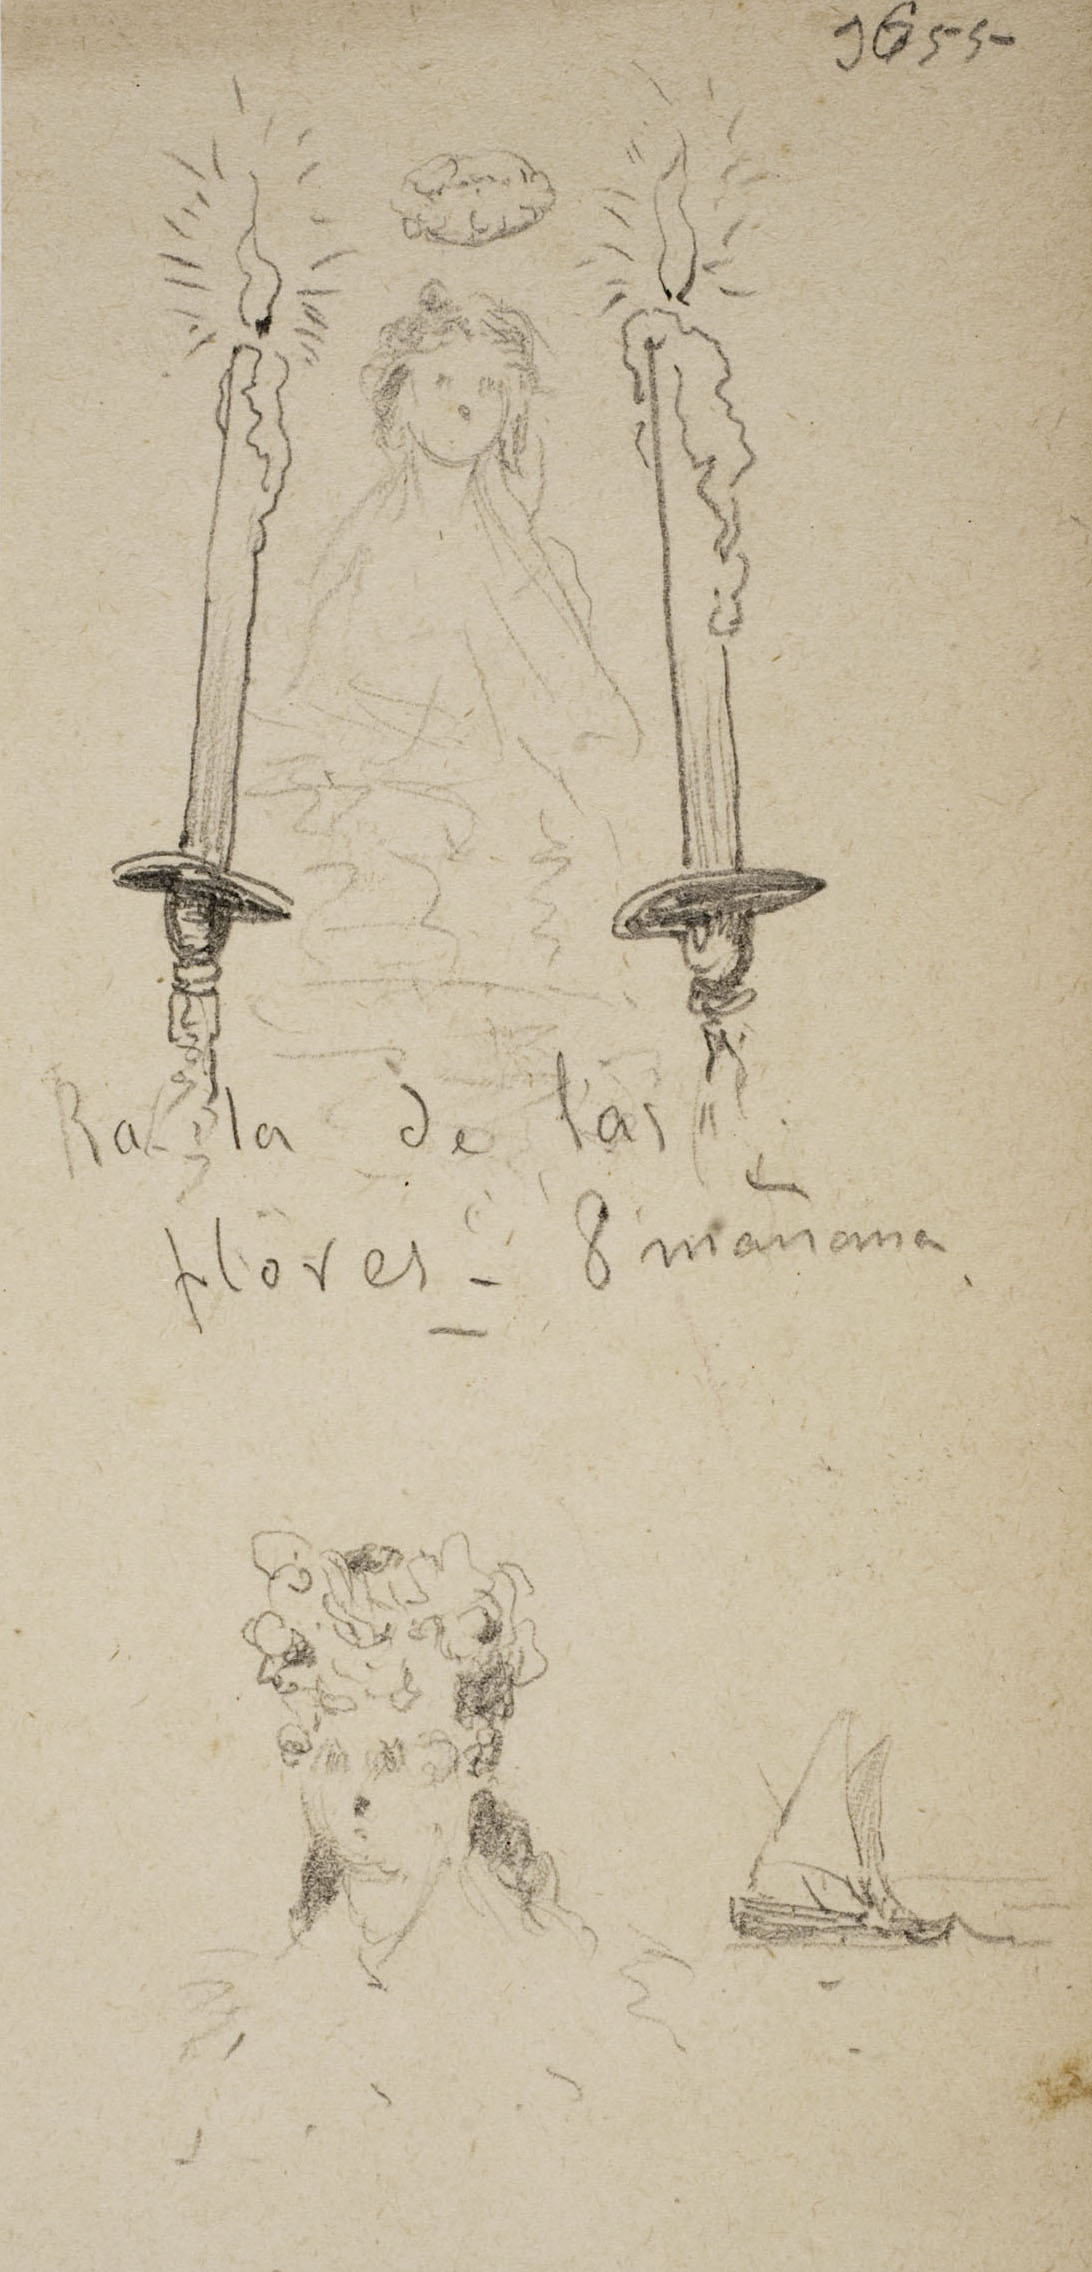 9655
Rambla de las
flores - 8 mañana.